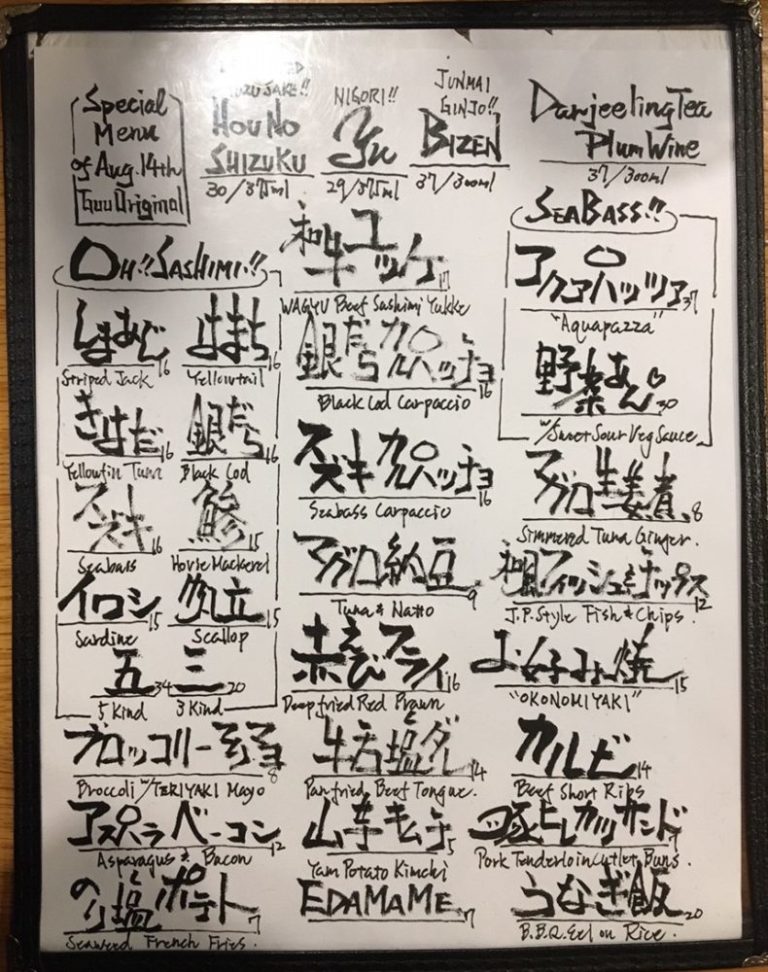 Special
Menu
of Aug. 14th
Guu Original
YUZU SAKE!!
HOU NO
SHIZUKU
30/375ml
NIGORI!!
Yu
29/375ml
JUNMAI
GINJO!!
BIZEN
37/300ml
Darjeeling Tea
Plum Wine
37/300ml
OH!! SASHIMI!!
しまあじ 16
Striped Jack
はまち 16
Yellowtail
きはだ 16
Yellowfin Tuna
銀だら 16
Black Cod
スズキ 16
Seabass
鯵 15
Horse Mackerel
イワシ 15
Sardine
帆立 15
Scallop
五 34
5 Kind
三 20
3 Kind
和牛ユッケ 17
WAGYU Beef Sashimi Yukke
銀だらカルパッチョ 16
Black Cod Carpaccio
スズキカルパッチョ 16
Seabass Carpaccio
マグロ納豆 9
Tuna & Natto
赤えびフライ 16
Deepfried Red Prawn
SEABASS!!
アクアパッツァ 37
"Aquapazza"
野菜あん 30
w/ Sweet Sour Veg Sauce
マグロ生姜煮 8
Simmered Tuna Ginger.
和風フィッシュ&チップス 12
J.P. Style Fish & Chips.
お好み焼 15
"OKONOMIYAKI"
ブロッコリー マヨ 8
Broccoli w/ TERIYAKI Mayo
牛舌塩ダレ 14
Panfried Beef Tongue.
カルビ 14
Beef Short Ribs
アスパラベーコン 12
Asparagus & Bacon
山芋キムチ 5
Yam Potato Kimchi
豚ヒレカツサンド
Pork Tenderloin Cutlet Buns.
のり塩ポテト 7
Seaweed French Fries.
EDAMAME 7
うなぎ飯 20
B.B.Q. Eel on Rice.